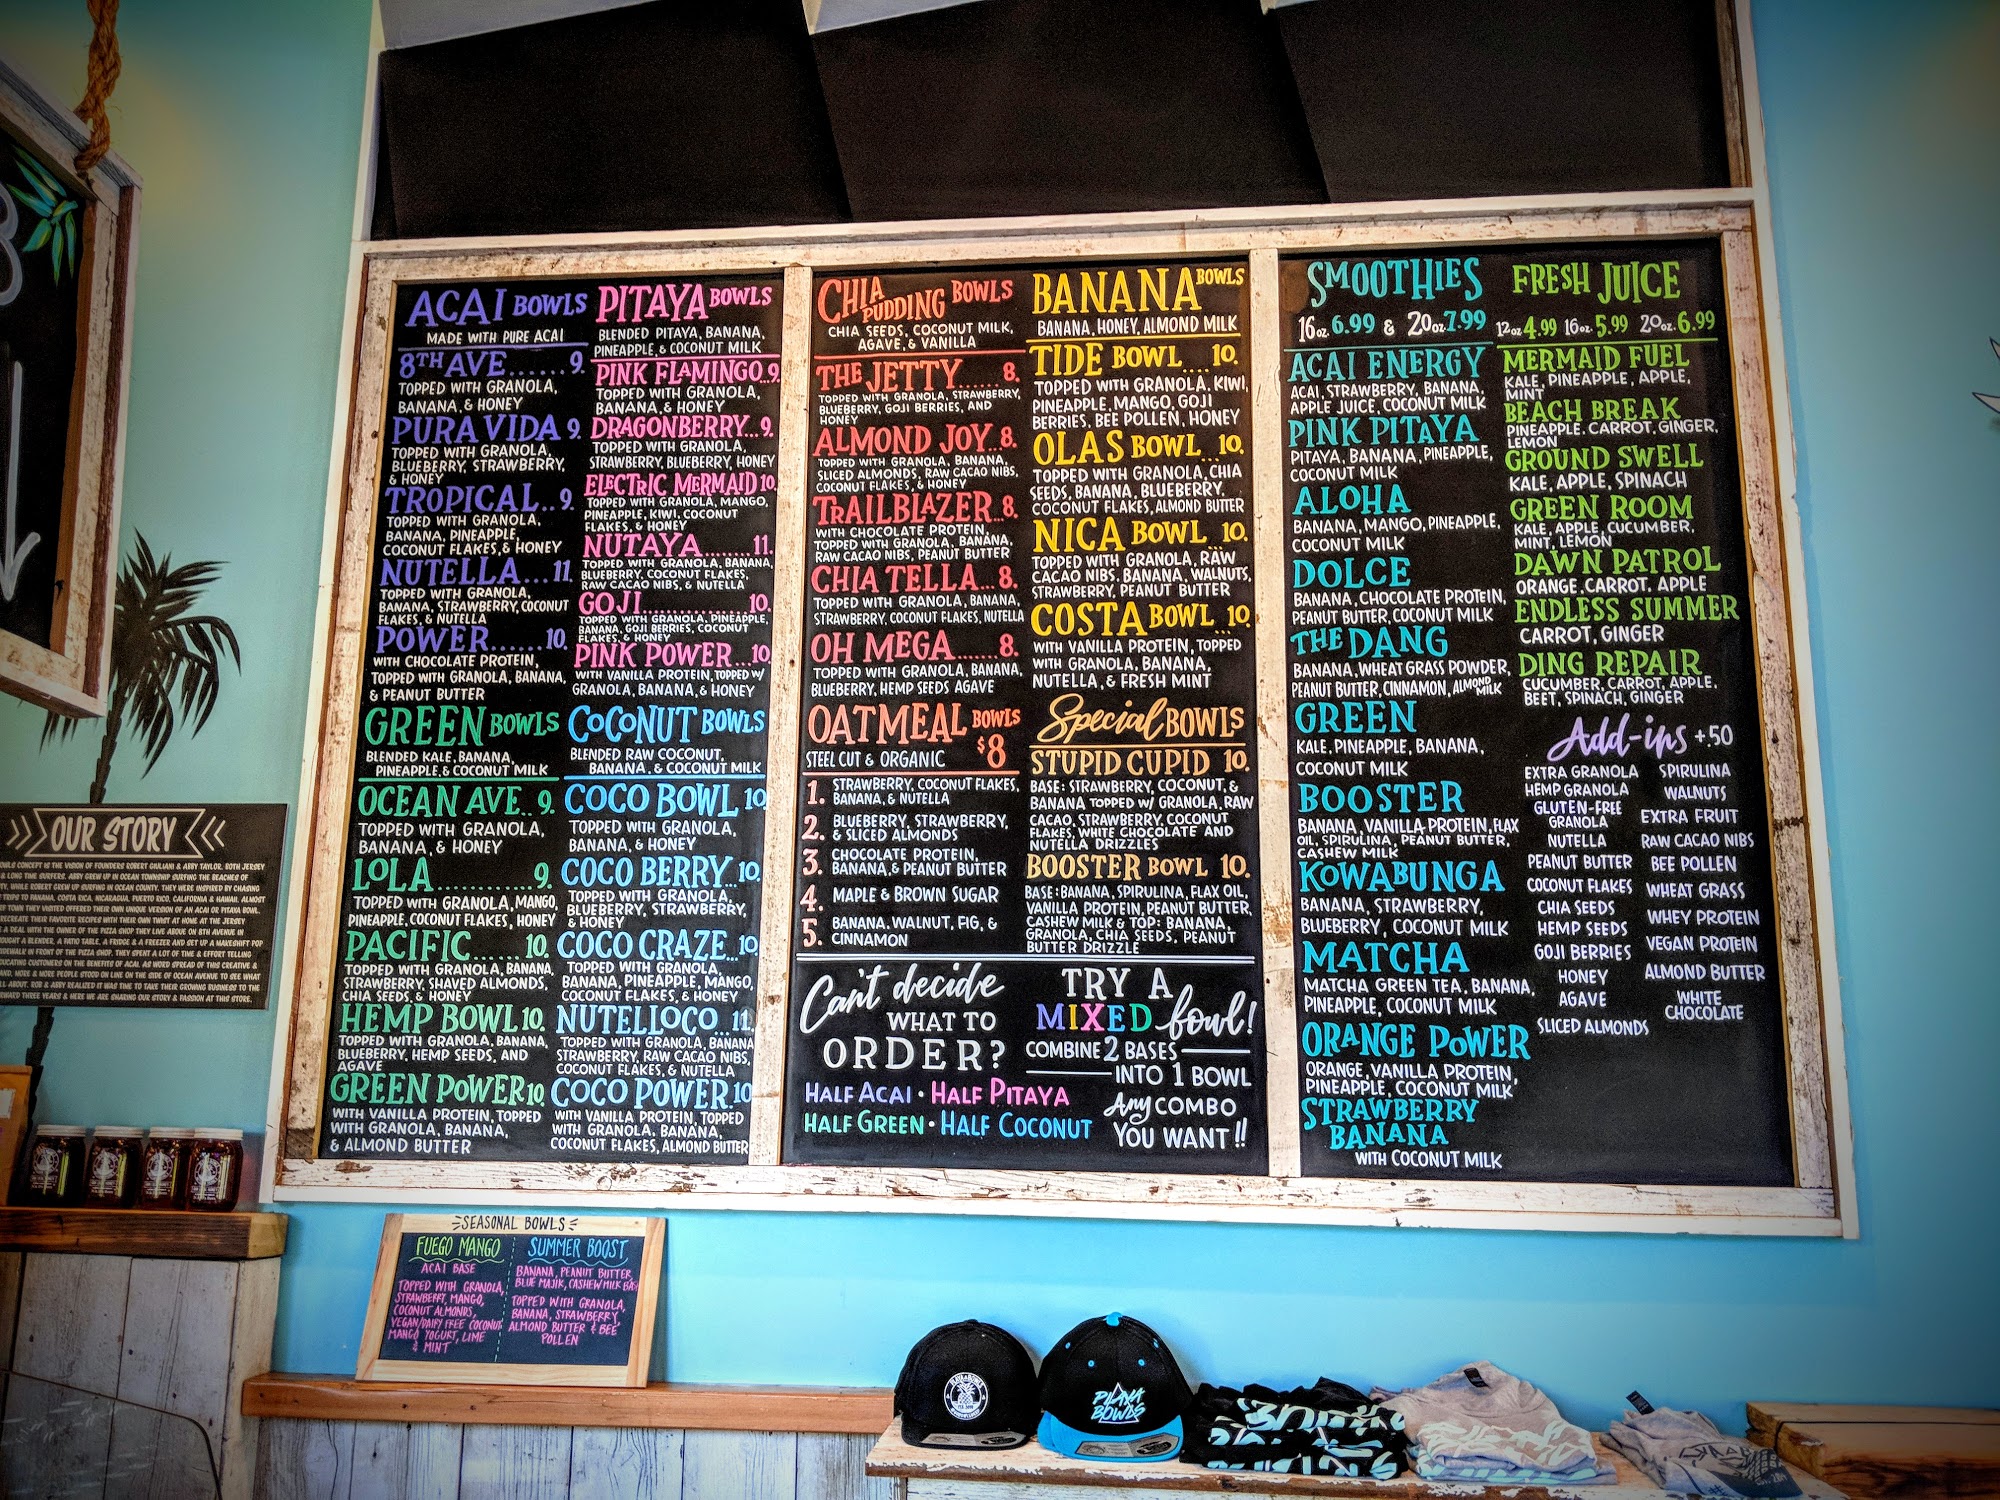 ACAI BOWLS
MADE WITH PURE ACAI
8TH AVE...... 9.
TOPPED WITH GRANOLA,
BANANA, & HONEY
PURA VIDA 9.
TOPPED WITH GRANOLA,
BLUEBERRY, STRAWBERRY,
& HONEY
TROPICAL.. 9.
TOPPED WITH GRANOLA,
BANANA, PINEAPPLE,
COCONUT FLAKES, & HONEY
NUTELLA... 11.
TOPPED WITH GRANOLA,
BANANA, STRAWBERRY, COCONUT
FLAKES, & NUTELLA
POWER...... 10.
WITH CHOCOLATE PROTEIN,
TOPPED WITH GRANOLA, BANANA,
& PEANUT BUTTER
GREEN BOWLS
BLENDED KALE, BANANA,
PINEAPPLE, & COCONUT MILK
OCEAN AVE.. 9.
TOPPED WITH GRANOLA,
BANANA, & HONEY
LOLA............ 9.
TOPPED WITH GRANOLA, MANGO,
PINEAPPLE, COCONUT FLAKES, HONEY
PACIFIC...... 10.
TOPPED WITH GRANOLA, BANANA,
STRAWBERRY, SHAVED ALMONDS,
CHIA SEEDS, & HONEY
HEMP BOWL 10.
TOPPED WITH GRANOLA, BANANA,
BLUEBERRY, HEMP SEEDS, AND
AGAVE
GREEN POWER 10.
WITH VANILLA PROTEIN, TOPPED
WITH GRANOLA, BANANA,
& ALMOND BUTTER
PITAYA BOWLS
BLENDED PITAYA, BANANA,
PINEAPPLE, & COCONUT MILK
PINK FLAMINGO...9.
TOPPED WITH GRANOLA,
BANANA, & HONEY
DRAGONBERRY... 9.
TOPPED WITH GRANOLA,
STRAWBERRY, BLUEBERRY, HONEY
ELECTRIC MERMAID 10.
TOPPED WITH GRANOLA, MANGO,
PINEAPPLE, KIWI, COCONUT
FLAKES, & HONEY
NUTAYA....... 11.
TOPPED WITH GRANOLA, BANANA,
BLUEBERRY, COCONUT FLAKES,
RAW CACAO NIBS, & NUTELLA
GOJI............. 10.
TOPPED WITH GRANOLA, PINEAPPLE,
BANANA, GOJI BERRIES, COCONUT
FLAKES, & HONEY
PINK POWER...10.
WITH VANILLA PROTEIN, TOPPED W/
GRANOLA, BANANA, & HONEY
COCONUT BOWLS
BLENDED RAW COCONUT,
BANANA, & COCONUT MILK
COCO BOWL 10
TOPPED WITH GRANOLA,
BANANA, & HONEY
COCO BERRY... 10.
TOPPED WITH GRANOLA,
BANANA, STRAWBERRY, BLUEBERRY,
& HONEY
COCO CRAZE.. 10.
TOPPED WITH GRANOLA,
BANANA, PINEAPPLE, MANGO,
COCONUT FLAKES, & HONEY
NUTELLOCO... 11.
TOPPED WITH GRANOLA, BANANA
STRAWBERRY, RAW CACAO NIBS,
COCONUT FLAKES, & NUTELLA
COCO POWER. 10.
WITH VANILLA PROTEIN, TOPPED
WITH GRANOLA, BANANA,
COCONUT FLAKES, ALMOND BUTTER
CHIA PUDDING BOWLS
CHIA SEEDS, COCONUT MILK,
AGAVE & VANILLA
THE JETTY...... 8.
TOPPED WITH GRANOLA, STRAWBERRY,
BLUEBERRY, GOJI BERRIES, AND
HONEY
ALMOND JOY.. 8.
TOPPED WITH GRANOLA, BANANA,
SLICED ALMONDS, RAW CACAO NIBS,
COCONUT FLAKES, & HONEY
TRAILBLAZER.. 8.
WITH CHOCOLATE PROTEIN,
TOPPED WITH GRANOLA, BANANA,
RAW CACAO NIBS, PEANUT BUTTER
CHIA TELLA... 8.
TOPPED WITH GRANOLA, BANANA,
STRAWBERRY, COCONUT FLAKES, NUTELLA
OH MEGA...... 8.
TOPPED WITH GRANOLA, BANANA,
BLUEBERRY, HEMP SEEDS AGAVE
OATMEAL BOWLS
STEEL CUT & ORGANIC $8
1. STRAWBERRY, COCONUT FLAKES,
BANANA, & NUTELLA
2. BLUEBERRY, STRAWBERRY,
& SLICED ALMONDS
3. CHOCOLATE PROTEIN,
BANANA, & PEANUT BUTTER
4. MAPLE & BROWN SUGAR
5. BANANA, WALNUT, FIG, &
CINNAMON
BANANA BOWLS
BANANA, HONEY, ALMOND MILK
TIDE BOWL.... 10.
TOPPED WITH GRANOLA, KIWI,
PINEAPPLE, MANGO, GOJI
BERRIES, BEE POLLEN, HONEY
OLAS BOWL... 10.
TOPPED WITH GRANOLA, CHIA
SEEDS, BANANA, BLUEBERRY,
COCONUT FLAKES, ALMOND BUTTER
NICA BOWL... 10.
TOPPED WITH GRANOLA, RAW
CACAO NIBS, BANANA, WALNUTS,
STRAWBERRY, PEANUT BUTTER
COSTA BOWL... 10.
WITH VANILLA PROTEIN, TOPPED
WITH GRANOLA, BANANA,
NUTELLA, & FRESH MINT
Special BOWLS
STUPID CUPID 10.
BASE: STRAWBERRY, COCONUT, &
BANANA TOPPED W/ GRANOLA, RAW
CACAO, STRAWBERRY, COCONUT
FLAKES, WHITE CHOCOLATE AND
NUTELLA DRIZZLES
BOOSTER BOWL 10.
BASE: BANANA, SPIRULINA, FLAX OIL,
VANILLA PROTEIN, PEANUT BUTTER,
CASHEW MILK & TOP: BANANA,
GRANOLA, CHIA SEEDS, PEANUT
BUTTER DRIZZLE
Can't decide
WHAT TO
ORDER?
TRY A
MIXED bowl!
COMBINE 2 BASES
INTO 1 BOWL
HALF ACAI • HALF PITAYA
HALF GREEN • HALF COCONUT
Any COMBO
YOU WANT!!
SMOOTHIES
16oz 6.99 & 20oz 7.99
ACAI ENERGY
ACAI, STRAWBERRY, BANANA,
APPLE JUICE, COCONUT MILK
PINK PITAYA
PITAYA, BANANA, PINEAPPLE,
COCONUT MILK
ALOHA
BANANA, MANGO, PINEAPPLE,
COCONUT MILK
DOLCE
BANANA, CHOCOLATE PROTEIN,
PEANUT BUTTER, COCONUT MILK
THE DANG
BANANA, WHEAT GRASS POWDER,
PEANUT BUTTER, CINNAMON, ALMOND MILK
GREEN
KALE, PINEAPPLE, BANANA,
COCONUT MILK
BOOSTER
BANANA, VANILLA PROTEIN, FLAX
OIL, SPIRULINA, PEANUT BUTTER,
CASHEW MILK
KOWABUNGA
BANANA, STRAWBERRY,
BLUEBERRY, COCONUT MILK
MATCHA
MATCHA GREEN TEA, BANANA,
PINEAPPLE, COCONUT MILK
ORANGE POWER
ORANGE, VANILLA PROTEIN,
PINEAPPLE, COCONUT MILK
STRAWBERRY
BANANA
WITH COCONUT MILK
FRESH JUICE
12oz 4.99 16oz 5.99 20oz 6.99
MERMAID FUEL
KALE, PINEAPPLE, APPLE,
MINT
BEACH BREAK
PINEAPPLE, CARROT, GINGER,
LEMON
GROUND SWELL
KALE, APPLE, SPINACH
GREEN ROOM
KALE, APPLE, CUCUMBER,
MINT, LEMON
DAWN PATROL
ORANGE, CARROT, APPLE
ENDLESS SUMMER
CARROT, GINGER
DING REPAIR
CUCUMBER, CARROT, APPLE,
BEET, SPINACH, GINGER
Add-ins +.50
EXTRA GRANOLA
HEMP GRANOLA
GLUTEN-FREE
GRANOLA
NUTELLA
PEANUT BUTTER
COCONUT FLAKES
CHIA SEEDS
HEMP SEEDS
GOJI BERRIES
HONEY
AGAVE
SLICED ALMONDS
SPIRULINA
WALNUTS
EXTRA FRUIT
RAW CACAO NIBS
BEE POLLEN
WHEAT GRASS
WHEY PROTEIN
VEGAN PROTEIN
ALMOND BUTTER
WHITE
CHOCOLATE
OUR STORY
OWLS CONCEPT IS THE VISION OF FOUNDERS ROBERT GIULIANI & ABBY TAYLOR. BOTH JERSEY
& LONG TIME SURFERS. ABBY GREW UP IN OCEAN TOWNSHIP SURFING THE BEACHES OF
TY, WHILE ROBERT GREW UP SURFING IN OCEAN COUNTY. THEY WERE INSPIRED BY CHASING
TRIPS TO PANAMA, COSTA RICA, NICARAGUA, PUERTO RICO, CALIFORNIA & HAWAII. ALMOST
TOWN THEY VISITED OFFERED THEIR OWN UNIQUE VERSION OF AN ACAI OR PITAYA BOWL.
RECREATE THEIR FAVORITE RECIPES WITH THEIR OWN TWIST AT HOME AT THE JERSEY
A DEAL WITH THE OWNER OF THE PIZZA SHOP THEY LIVE ABOVE ON 8TH AVENUE IN
OUGHT A BLENDER, A PATIO TABLE, A FRIDGE & A FREEZER AND SET UP A MAKESHIFT POP
SIDEWALK IN FRONT OF THE PIZZA SHOP. THEY SPENT A LOT OF TIME & EFFORT TELLING
UCATING CUSTOMERS ON THE BENEFITS OF ACAI. AS WORD SPREAD OF THIS CREATIVE &
AND, MORE & MORE PEOPLE STOOD ON LINE ON THE SIDE OF OCEAN AVENUE TO SEE WHAT
LL ABOUT. ROB & ABBY REALIZED IT WAS TIME TO TAKE THEIR GROWING BUSINESS TO THE
WARD THREE YEARS & HERE WE ARE SHARING OUR STORY & PASSION AT THIS STORE.
SEASONAL BOWLS
FUEGO MANGO
ACAI BASE
TOPPED WITH GRANOLA,
STRAWBERRY, MANGO,
COCONUT ALMONDS,
VEGAN/DAIRY FREE COCONUT
MANGO YOGURT, LIME
& MINT
SUMMER BOOST
BANANA, PEANUT BUTTER
BLUE MAJIK, CASHEW MILK BASE
TOPPED WITH GRANOLA,
BANANA, STRAWBERRY,
ALMOND BUTTER & BEE
POLLEN
PLAYA
BOWLS